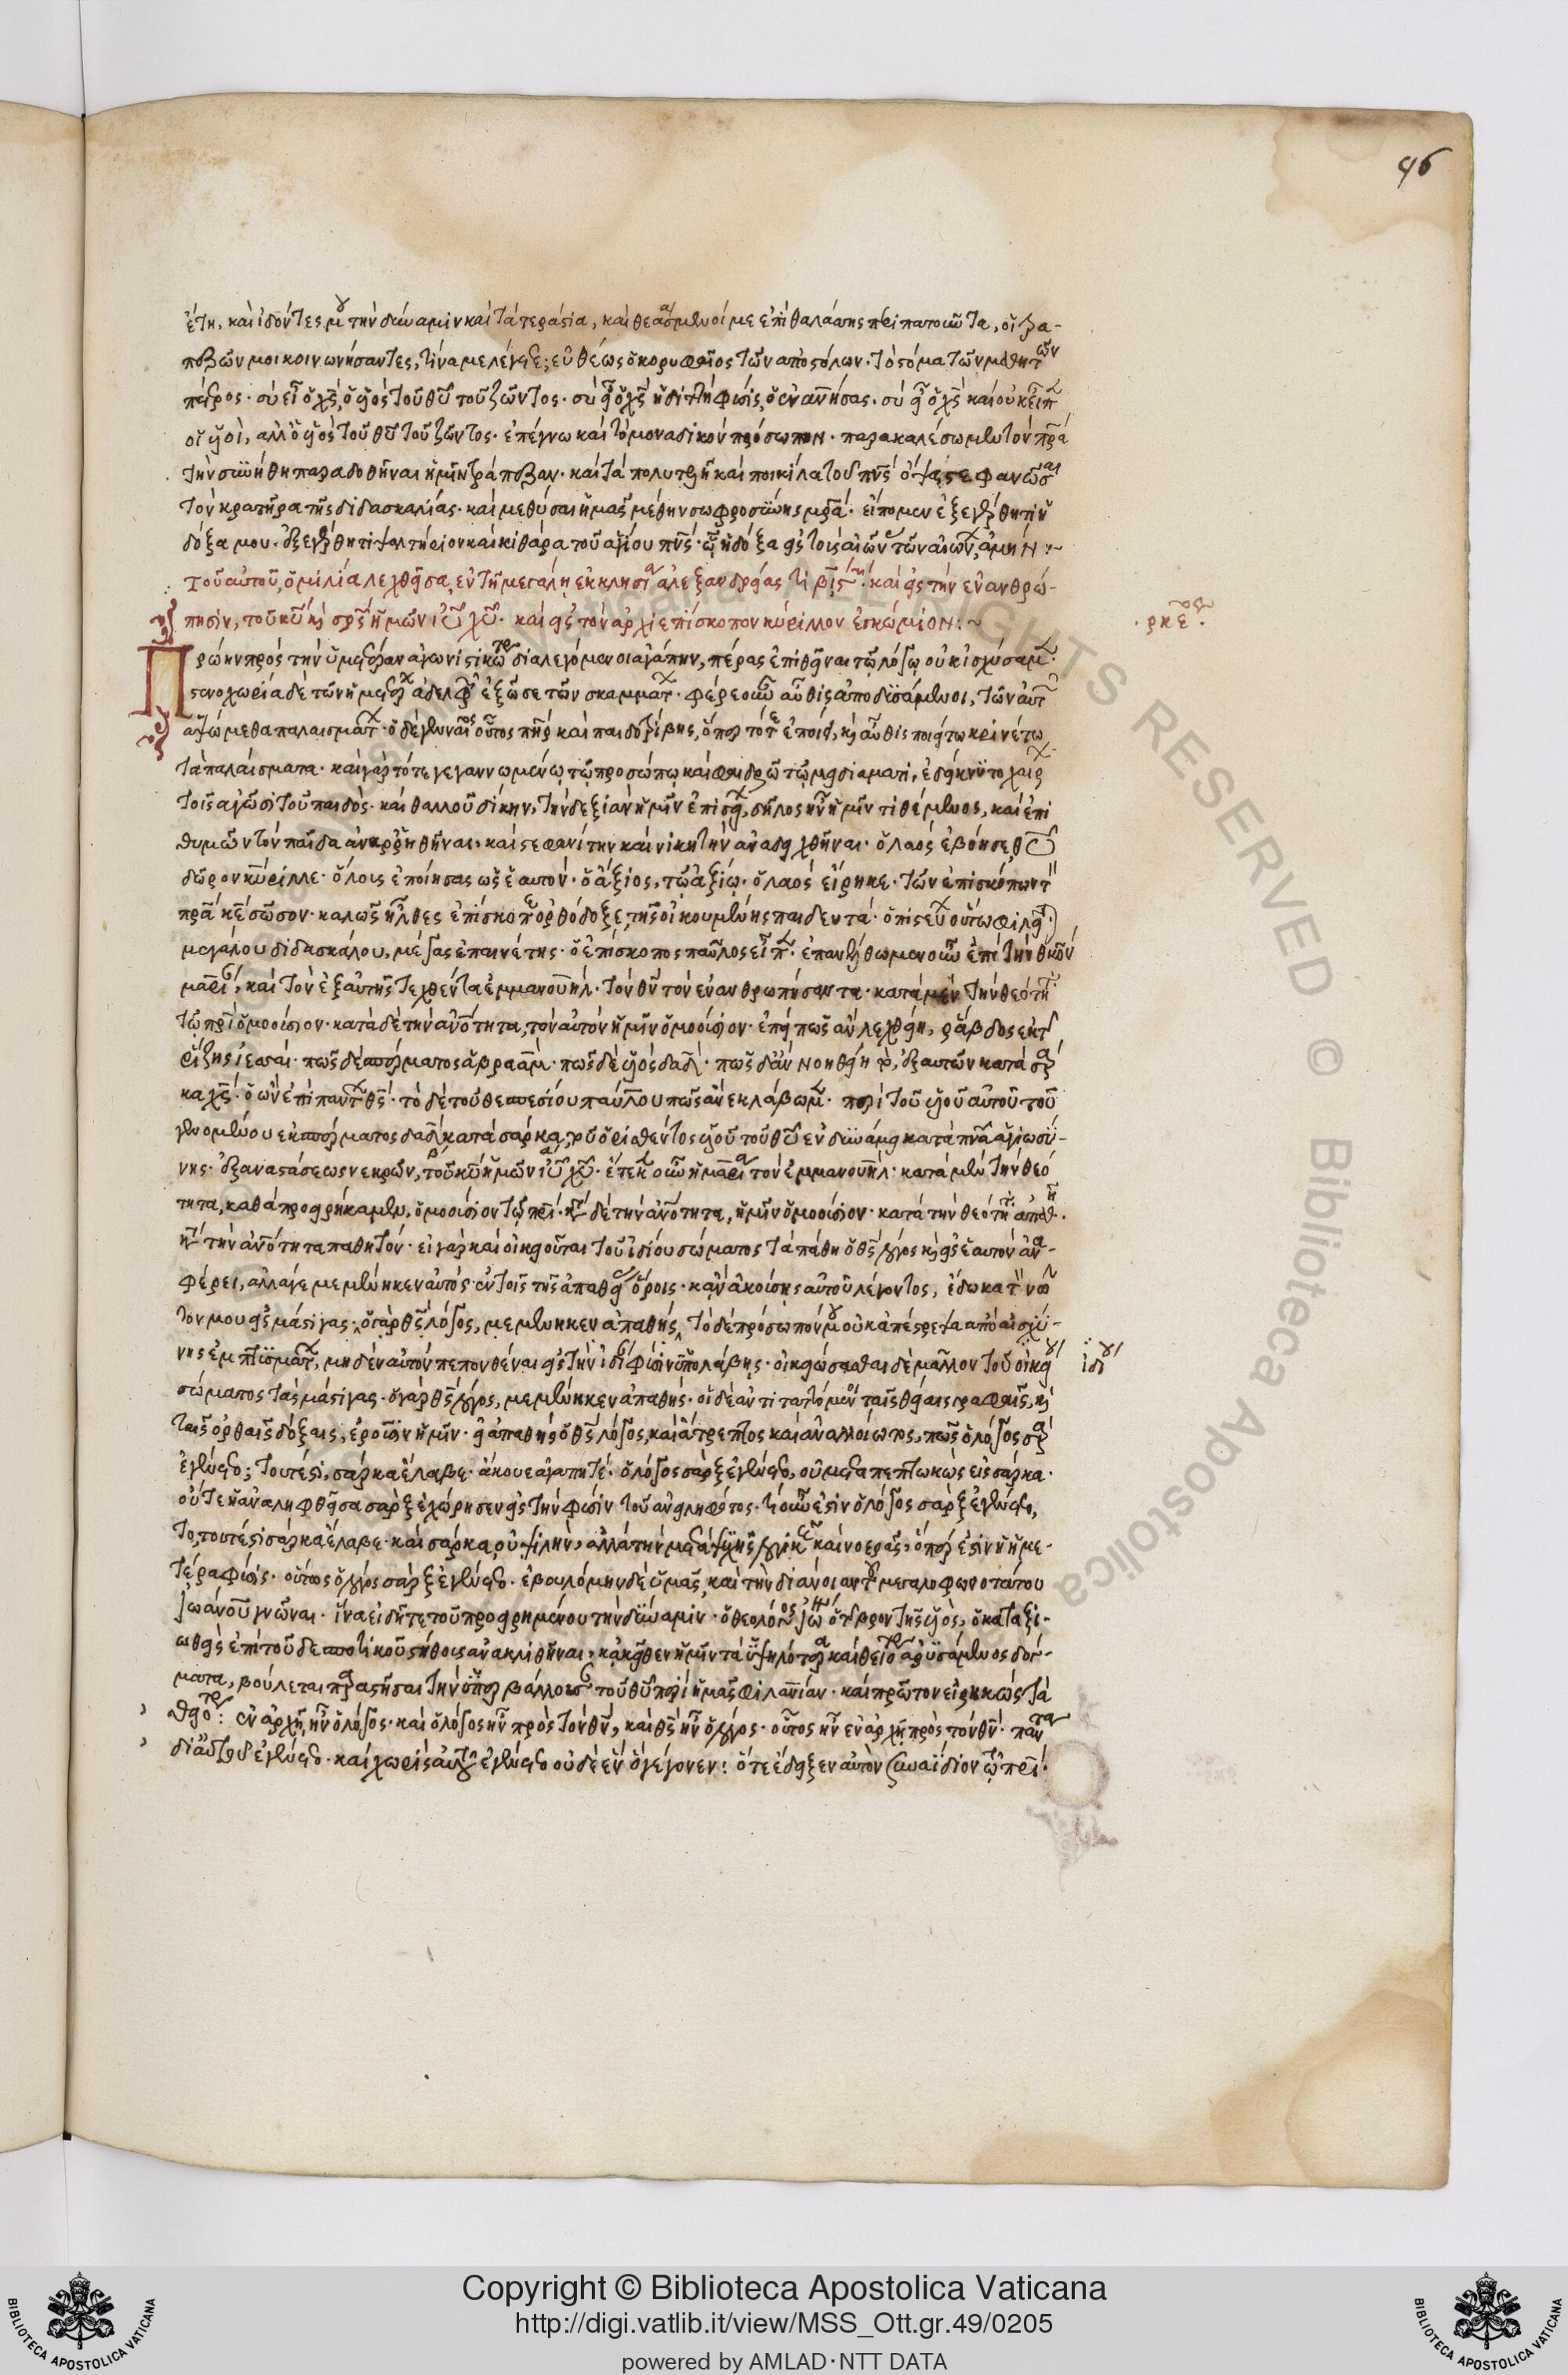 96
ἔτη, καὶ ἰδόντες μου τὴν δύναμιν καὶ τὰ τεράστια, καὶ θεασάμενοί με ἐπὶ θαλάσσης περιπατοῦντα, οἱ τρα-
πεζῶν μοι κοινωνήσαντες, τίνα με λέγετε; εὐθέως ὁ κορυφαῖος τῶν αποστόλων. τὸ στόμα τῶν μαθητῶν
πέτρος. σὺ εἶ ὁ χς, ὁ υἱὸς τοῦ θυ τοῦ ζῶντος. σὺ εἶ ὁ χς
οἱ υἱοὶ, ἀλλ' ὁ υἱὸς τοῦ θυ τοῦ ζῶντος. ἐπέγνω καὶ τὸ μοναδικὸν πρόσωπον. παρακαλέσωμεν τὸν πρα
τὴν συνήθη παραδοθῆναι ἡμῖν τράπεζαν. καὶ τὰ πολυτελῆ καὶ ποικίλα τοῦ πνς
τὸν κρατῆρα τῆς διδασκαλίας. καὶ μεθύσαι ἡμᾶς μέθην σωφροσύνης μρα. εἴπομεν ἐξεγέρθητι ἡ
δόξα μου. ἐξεγέρθητι ψαλτήριον καὶ κιθάρα τοῦ ἁγίου πνς. ᾧ ἡ δόξα εἰς τοὺς αἰῶνας τῶν αἰώνων, ἀμήν :~
Τοῦ αὐτοῦ, ὁμιλία λεχθεῖσα, ἐν τῇ μεγάλῃ ἐκκλησίᾳ ἀλεξανδρείας καὶ εἰς τὴν ἐνανθρώ-
πησιν, τοῦ κυ καὶ σρς ἡμῶν ιυ χυ. καὶ εἰς τὸν ἀρχιεπίσκοπον κύριλλον ἐγκώμιον :~
ρκε.
Πρώην πρὸς τὴν ὑμετέραν ἀγωνιστικώτερον διαλεγόμενοι ἀγάπην, πέρας ἐπιθεῖναι τῷ λόγῳ οὐκ ἰσχύσαμεν.
στενοχωρία δὲ τῶν ἡμετέρων ἀδελφῶν ἐξῶσε τῶν σκαμμάτων. φέρε οὖν αὖθις ἀποδυσάμενοι, τῶν αὐτῶν
ἁψώμεθα παλαισμάτων. ὁ δὲ γενναῖος οὗτος πηρ καὶ παιδοτρίβης, ὅπερ τότε ἐποίει, καὶ αὖθις ποιείτω κρινέτω
τὰ παλαίσματα. καὶ γὰρ τότε γεγαννωμένῳ τῷ προσώπῳ καὶ φαιδρῷ τῷ μειδιάματι, ἐδείκνυτο χαίρων
τοῖς ἀγῶσι τοῦ παιδὸς. καὶ θαλλοῦ δίκην, τὴν δεξιὰν ἡμῖν ἐπισείων, δῆλος ἦν ἡμῖν τιθέμενος, καὶ ἐπι
θυμῶν τὸν παῖδα ἀναρρηθῆναι. καὶ στεφανίτην καὶ νικητὴν ἀναδειχθῆναι. ὁ λαὸς ἐβόησε, θυ
δῶρον κύριλλε. ὅλους ἐποίησας ὡς ἑαυτόν. ὁ ἄξιος, τῷ ἀξίῳ. ὁ λαὸς εἴρηκε. τῶν ἐπισκόπων τὸν
πρα κε σῶσον. καλῶς ἦλθες ἐπίσκοπε ὀρθόδοξε, τῆς οἰκουμένης παιδευτά.
μεγάλου διδασκάλου, μέγας ἐπαινέτης. ὁ ἐπίσκοπος παῦλος εἶπεν. ἐπανέλθωμεν οὖν ἐπὶ τὴν θκον
μαρίαν, καὶ τὸν ἐξ αὐτῆς τεχθέντα ἐμμανουήλ. τὸν θν τὸν ἐνανθρωπήσαντα. κατὰ μὲν τὴν θεότητα
τῷ πρι ὁμοούσιον. κατὰ δὲ τὴν ἀνότητα, τὸν αὐτὸν ἡμῖν ὁμοούσιον. ἐπεὶ πῶς ἂν λεχθείη, ῥάβδος ἐκ τῆς
ῥίζης ἰεσσαί. πῶς δὲ σπέρματος ἀβραάμ. πῶς δὲ υἱὸς δαδ. πῶς δ' ἂν νοηθείη τὸ, ἐξ αὐτῶν κατὰ σάρ
κα χς. ὁ ὢν ἐπὶ πάντων θς. τὸ δὲ τοῦ θεσπεσίου παύλου πῶς ἂν ἐκλάβωμεν. περὶ τοῦ υἱοῦ αὐτοῦ τοῦ
γενομένου ἐκ σπέρματος δαδ κατὰ σάρκα, τοῦ ὁρισθέντος υἱοῦ τοῦ θυ ἐν δυνάμει κατὰ πνα ἁγιωσύ-
νης. ἐξ ἀναστάσεως νεκρῶν, τοῦ κυ ἡμῶν ιυ χυ. ἔτεκεν οὖν ἡ μαρία τὸν ἐμμανουήλ. κατὰ μὲν τὴν θεό
τητα, καθὰ προειρήκαμεν, ὁμοούσιον τῷ πρι. κατὰ δὲ τὴν ἀνότητα, ἡμῖν ὁμοούσιον. κατὰ τὴν θεότητα ἀπαθῆ.
κατὰ τὴν ἀνότητα παθητόν. εἰ γὰρ καὶ οἰκειοῦται τοῦ ἰδίου σώματος τὰ πάθη ὁ θς λόγος καὶ εἰς ἑαυτὸν ἀνα-
φέρει, ἀλλά γε μεμένηκεν αὐτὸς ἐν τοῖς τῆς ἀπαθείας ὅροις. κἂν ἀκούσῃς αὐτοῦ λέγοντος, ἔδωκα τὸν νῶ
τον μου εἰς μάστιγας. ὁ γὰρ θς λόγος, μεμένηκεν ἀπαθής, τὸ δὲ πρόσωπόν μου οὐκ ἀπέστρεψα ἀπὸ αἰσχύ-
νης ἐμπτυσμάτων, μηδὲν αὐτὸν πεπονθέναι εἰς τὴν ἰδίαν φύσιν ὑπολάβῃς. οἰκειώσασθαι δὲ μᾶλλον τοῦ οἰκείου
ἰδίου
σώματος τὰς μάστιγας. ὁ γὰρ θς λόγος, μεμένηκεν ἀπαθής. οἱ δὲ ἀντιταττόμενοι ταῖς θείαις γραφαῖς, καὶ
ταῖς ὀρθαῖς δόξαις, ἐροῦσιν ἡμῖν. εἰ ἀπαθὴς ὁ θς λόγος, καὶ ἄτρεπτος καὶ ἀναλλοίωτος, πῶς ὁ λόγος σὰρξ
ἐγένετο; τουτέστι, σάρκα ἔλαβε. ἄκουε ἀγαπητέ. ὁ λόγος σὰρξ ἐγένετο, οὐ μεταπεπτωκὼς εἰς σάρκα.
οὔτε ἡ ἀναληφθεῖσα σὰρξ ἐχώρησεν εἰς τὴν φύσιν τοῦ ἀνειληφότος. τί οὖν ἐστὶν ὁ λόγος σὰρξ ἐγένετο,
το, τουτέστι σάρκα ἔλαβε. καὶ σάρκα, οὐ ψιλήν, ἀλλὰ τὴν μετὰ ψυχῆς λογικῆς καὶ νοερᾶς, ὅπερ ἐστὶν ἡ ἡμε-
τέρα φύσις. οὕτως ὁ λόγος σὰρξ ἐγένετο. ἐβουλόμην δὲ ὑμᾶς, καὶ τὴν διάνοιαν τοῦ μεγαλοφωνοτάτου
ἰωάννου γνῶναι. ἵνα εἰδῆτε τοῦ προειρημένου τὴν δύναμιν. ὁ θεολόγος ἰωάννης ὁ τῆς βροντῆς υἱὸς, ὁ καταξι-
ωθεὶς ἐπὶ τοῦ δεσποτικοῦ στήθους ἀνακλιθῆναι, κἀκεῖθεν ἡμῖν τὰ ὑψηλότερα καὶ θειότερα ἀρυσάμενος δόγ-
ματα, βούλεται παραστῆσαι τὴν ὑπερβάλλουσαν τοῦ θυ περὶ ἡμᾶς φιλανίαν. καὶ πρῶτον εἰρηκὼς τὰ
θειότερα: ἐν ἀρχῇ ἦν ὁ λόγος. καὶ ὁ λόγος ἦν πρὸς τὸν θν, καὶ θς ἦν ὁ λόγος. οὗτος ἦν ἐν ἀρχῇ πρὸς τὸν θν. πάντα
δι' αὐτοῦ ἐγένετο. καὶ χωρὶς αὐτοῦ ἐγένετο οὐδὲ ἓν ὃ γέγονεν: ὅτε ἔδειξεν αὐτὸν συναΐδιον τῷ πρι.
Copyright © Biblioteca Apostolica Vaticana
http://digi.vatlib.it/view/MSS_Ott.gr.49/0205
powered by AMLAD·NTT DATA